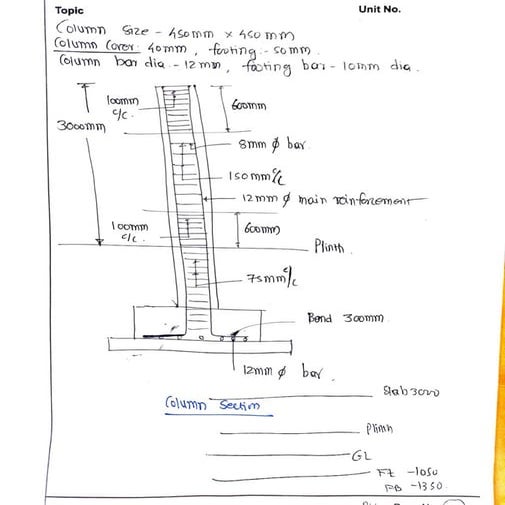 Topic Unit No.
Column Size - 450mm x 450mm
Column Cover: 40mm, footing - 50mm.
Column bar dia - 12mm, footing bar - 10mm dia.
100mm c/c.
600mm
3000mm
8mm ϕ bar
150mm c/c
12mm ϕ main reinforcement
100mm c/c.
600mm
Plinth
75mm c/c
Bend 300mm
12mm ϕ bar.
Slab 3000
Column Section
Plinth
GL
FT -1050
FB -1350